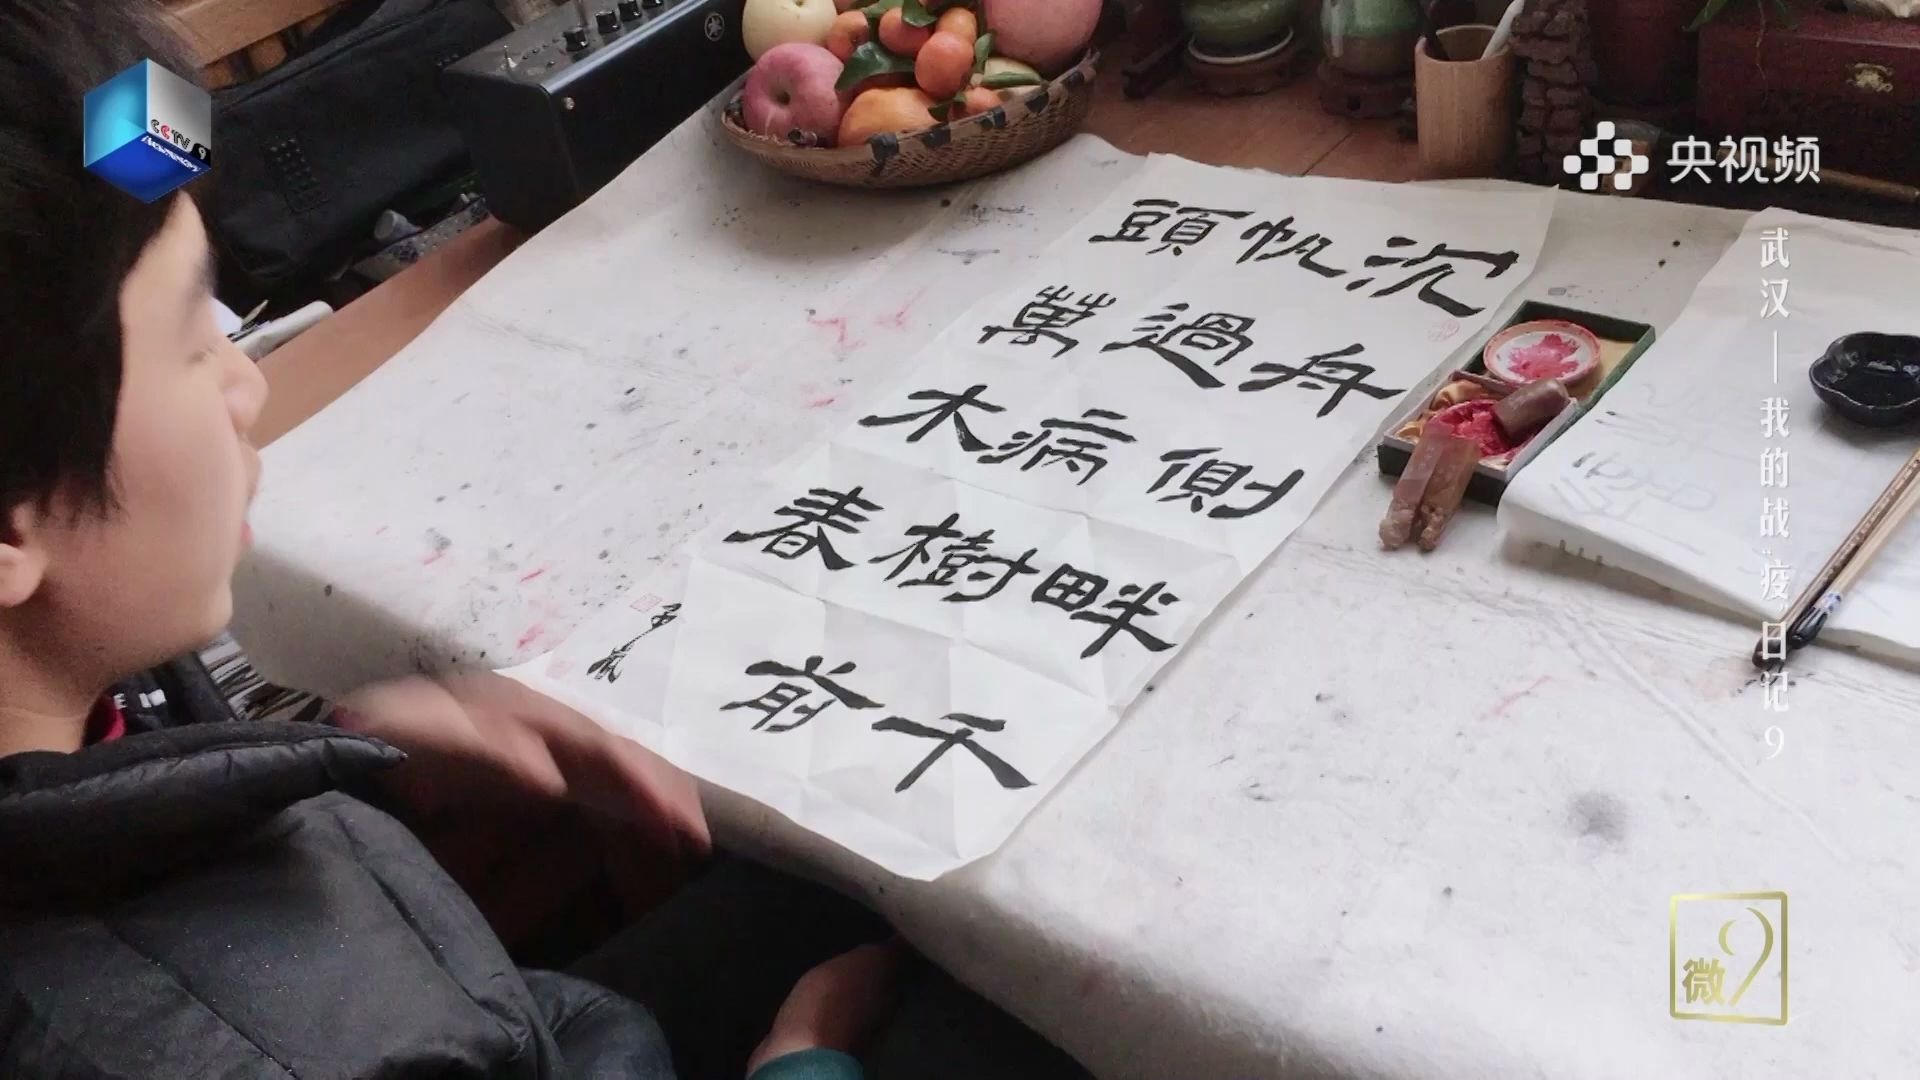 CCTV 9
Documentary
央视频
武汉—我的战“疫”日记9
沉舟側畔千
帆過病樹前
頭萬木春
微9